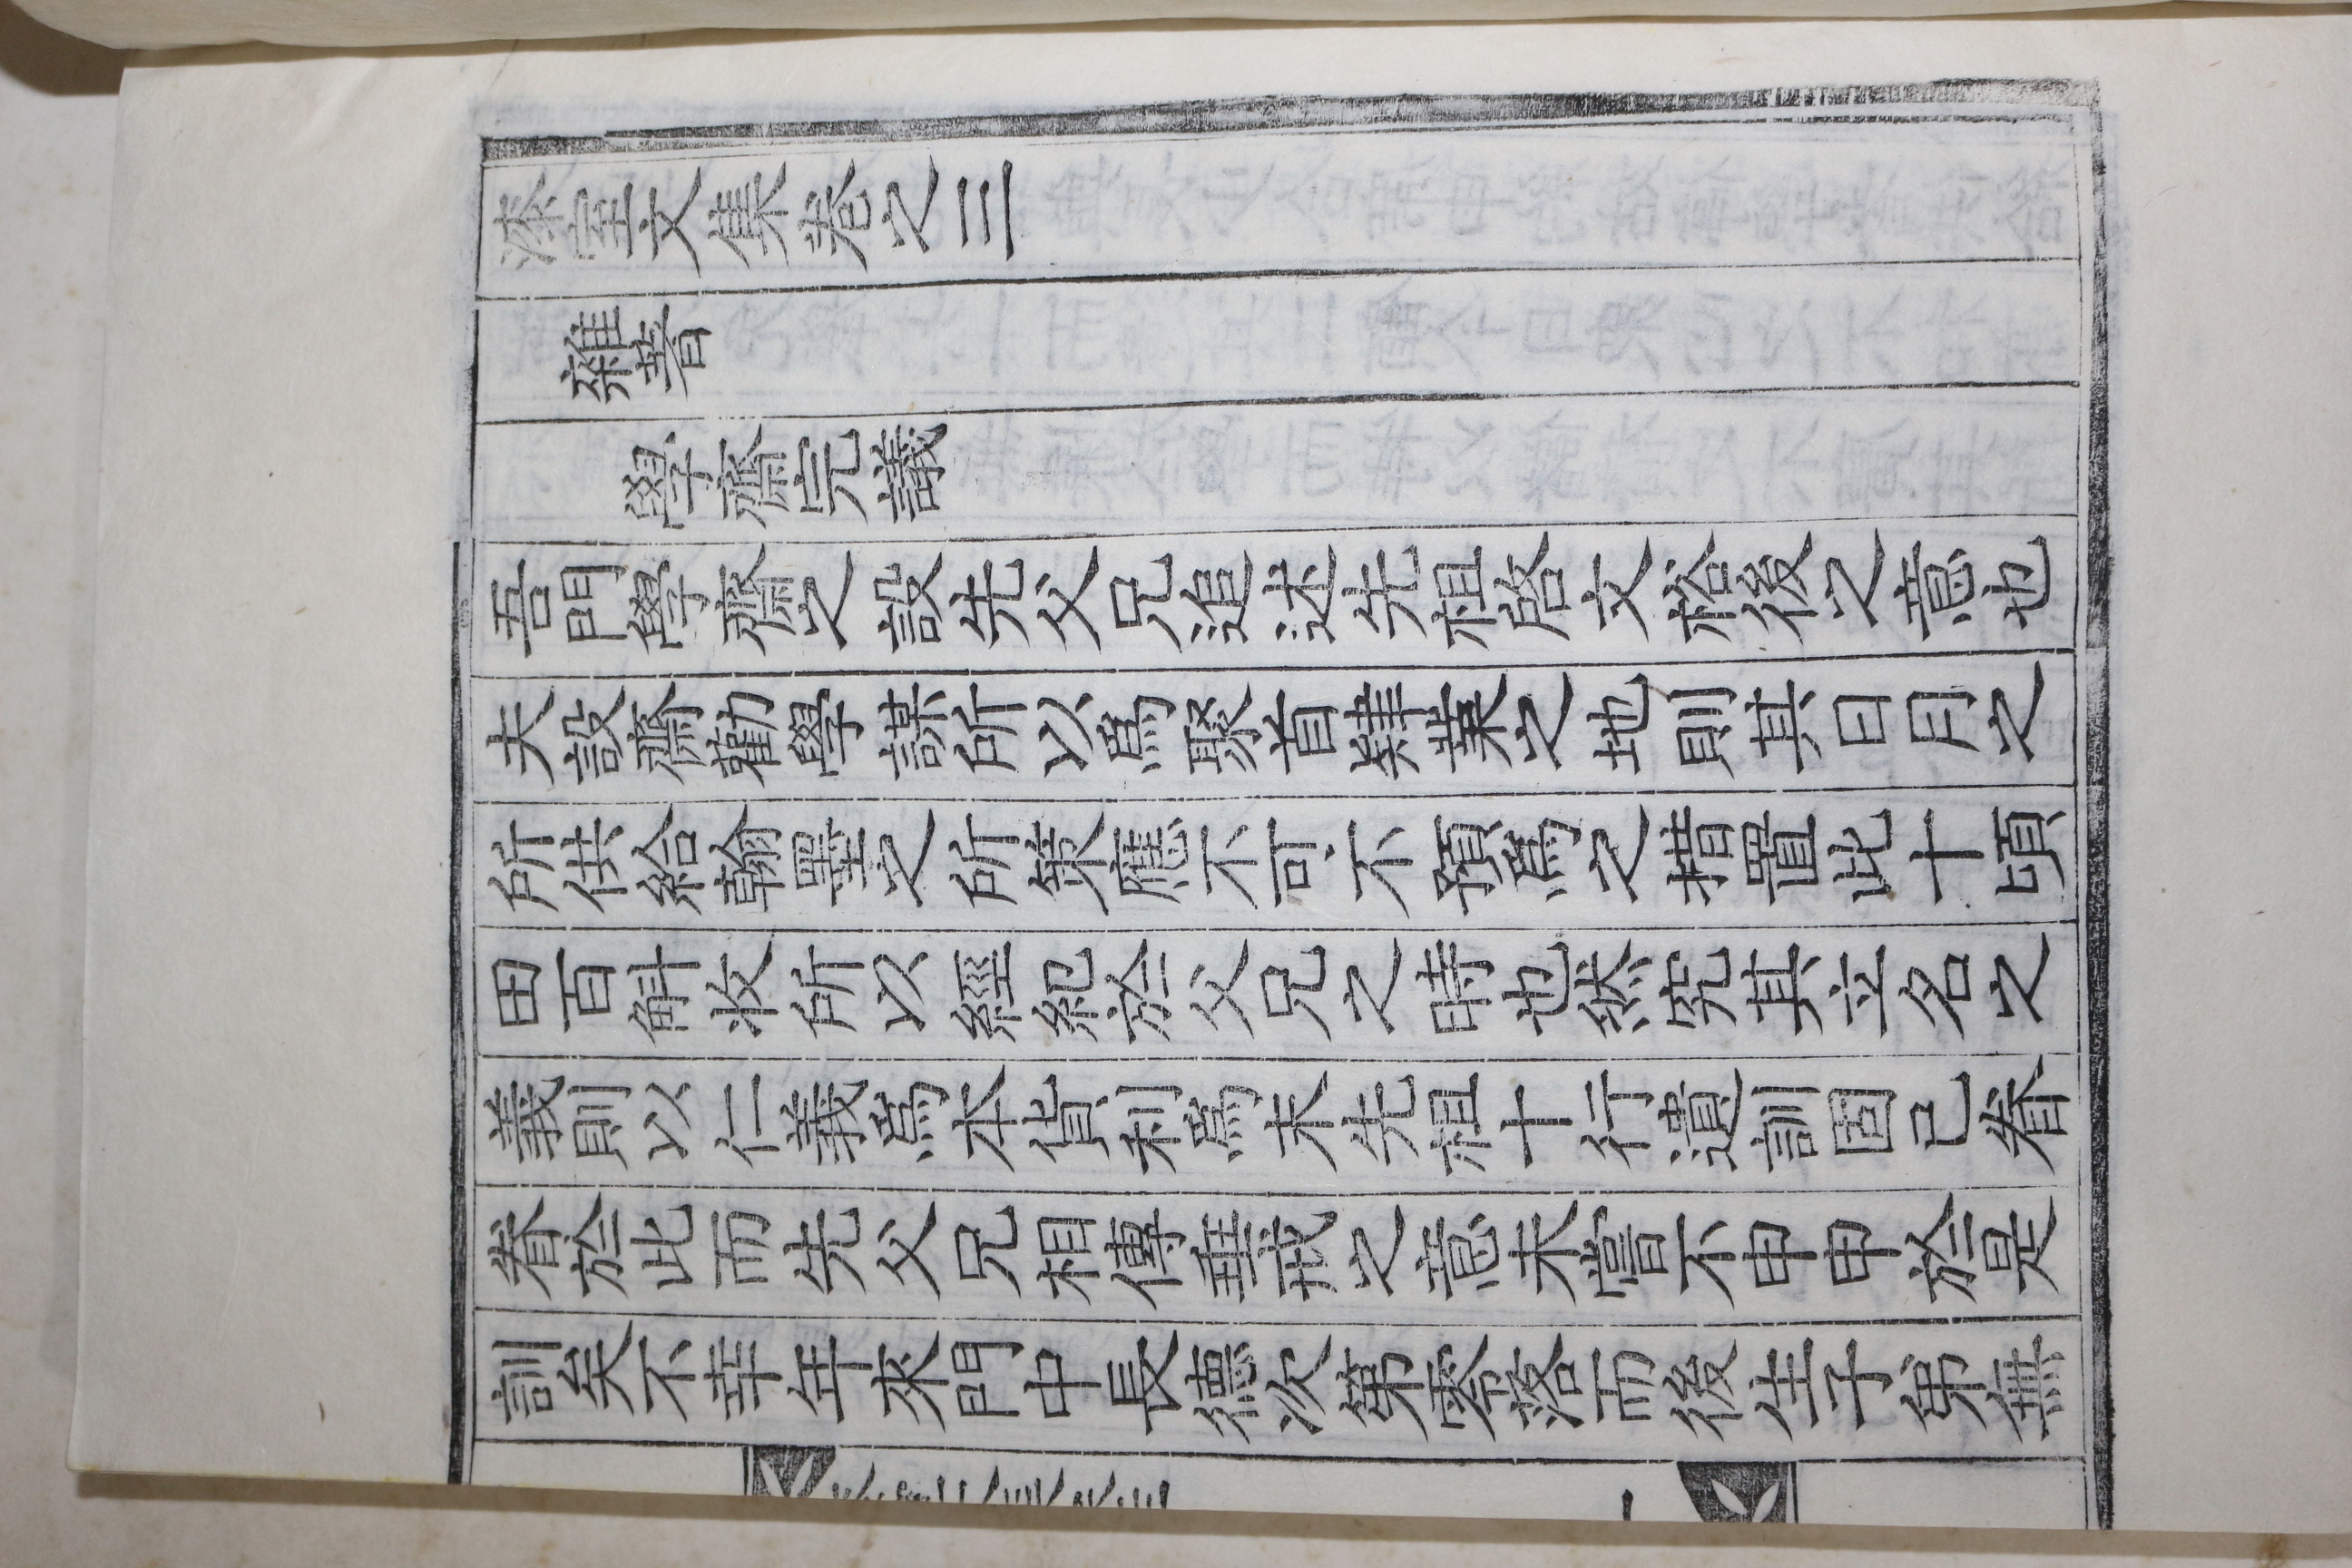 漆室文集卷之三
雜著
學齋完議
吾門學齋之設先父兄追述先祖啓文裕後之意也
夫設齋勸學謀所以爲聚首肄業之地則其日月之
所供給翰墨之所策應不可不預爲之措置此十頃
田百斛收所以經紀於父兄之時也然究其立名之
義則以仁義爲本貨利爲末先祖十行遺訓固已眷
眷於此而先父兄相傳垂戒之意未嘗不申申於是
訓矣不幸年來門中長德次第零落而後生子弟無